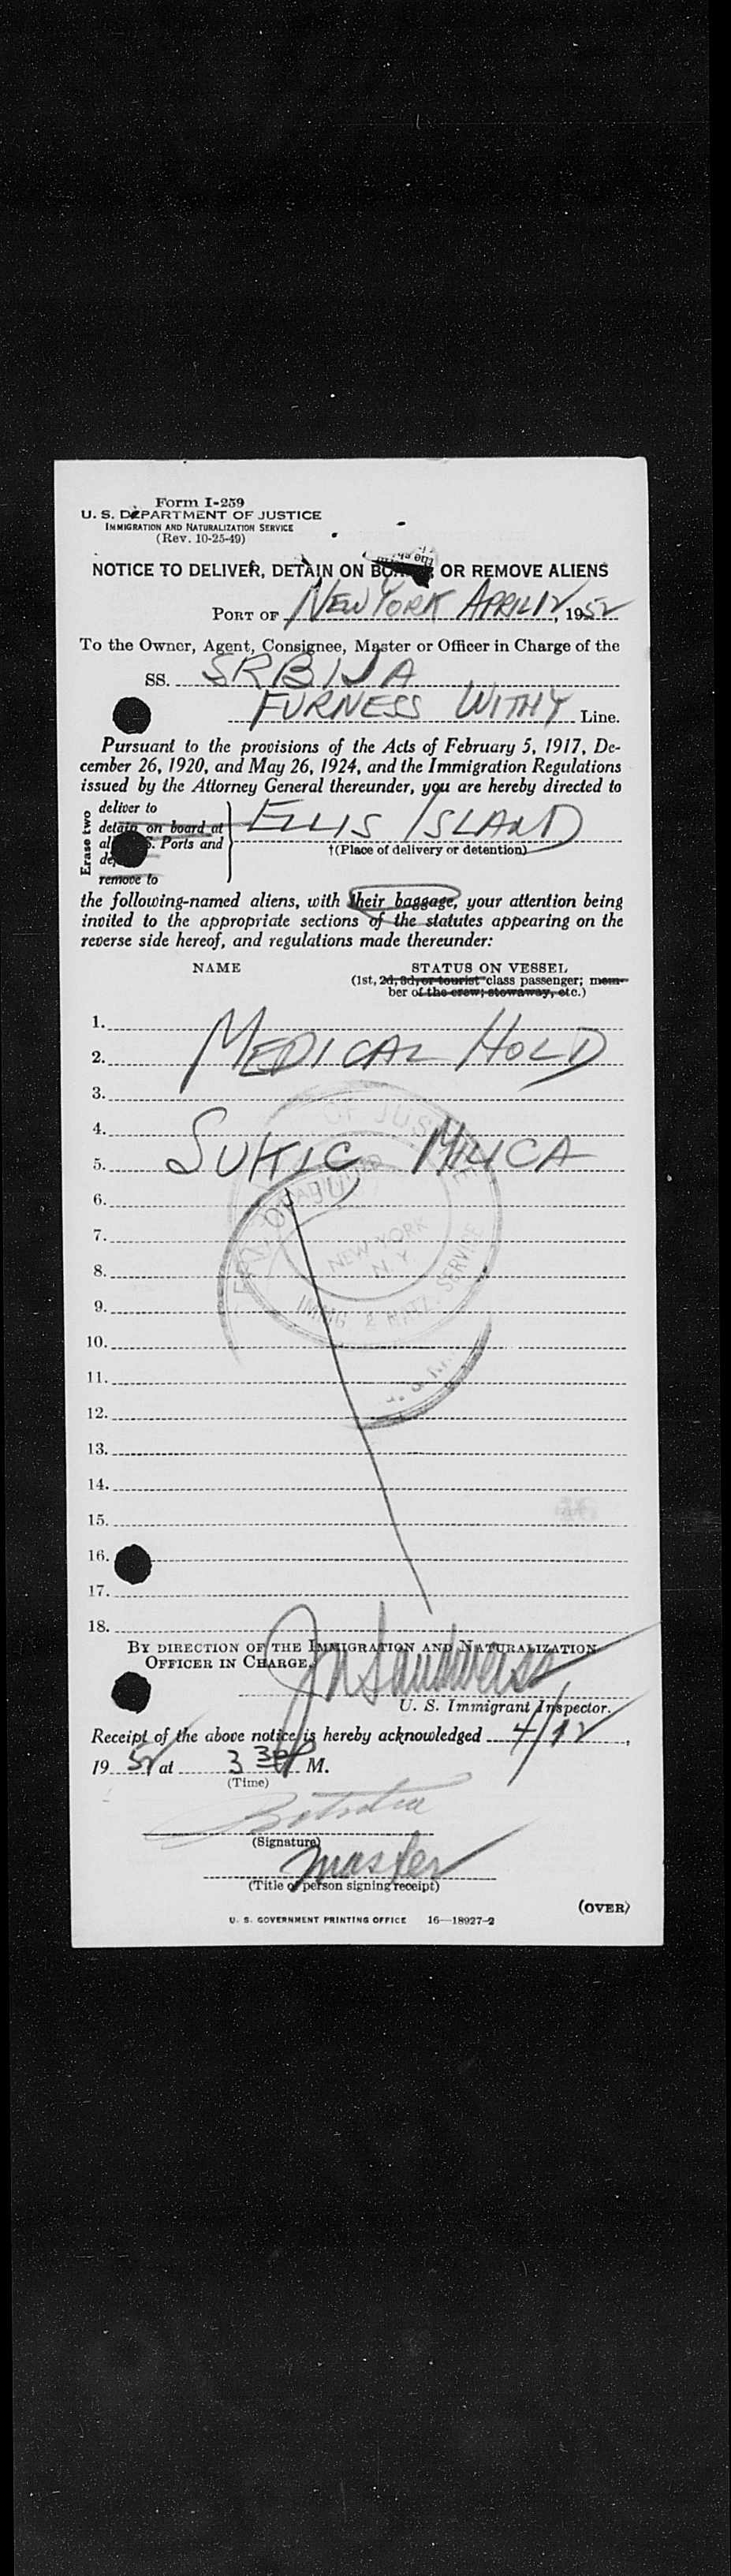 Form I-259
U. S. DEPARTMENT OF JUSTICE
IMMIGRATION AND NATURALIZATION SERVICE
(Rev. 10-25-49)
NOTICE TO DELIVER, DETAIN ON OR REMOVE ALIENS
PORT OF NEW YORK APRIL 12, 1952
To the Owner, Agent, Consignee, Master or Officer in Charge of the
SS. SRBIJA
FURNESS WITHY Line.
Pursuant to the provisions of the Acts of February 5, 1917, De-
cember 26, 1920, and May 26, 1924, and the Immigration Regulations
issued by the Attorney General thereunder, you are hereby directed to
Erase two
deliver to
detain on board at
Ports and
remove to
ELLIS ISLAND
†(Place of delivery or detention)
the following-named aliens, with their baggage, your attention being
invited to the appropriate sections of the statutes appearing on the
reverse side hereof, and regulations made thereunder:
NAME STATUS ON VESSEL
(1st, 2d, 3d, or tourist class passenger; mem-
ber of the crew; stowaway, etc.)
1.
2. MEDICAL HOLD
3.
4.
5. SUKIC MILICA
6.
7.
8.
9.
10.
11.
12.
13.
14.
15.
16.
17.
18.
OF JUS
NEW YORK
N. Y.
IMMIG. & NATZ. SERVICE
BY DIRECTION OF THE IMMIGRATION AND NATURALIZATION
OFFICER IN CHARGE,
U. S. Immigrant Inspector.
Receipt of the above notice is hereby acknowledged 4/12,
1952 at 3 30 P M.
(Time)
(Signature)
master
(Title of person signing receipt)
(OVER)
U. S. GOVERNMENT PRINTING OFFICE 16—18927-2